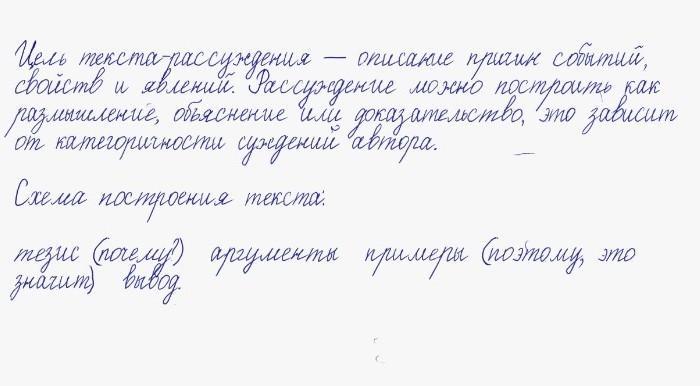 Цель текста-рассуждения — описание причин событий,
свойств и явлений. Рассуждение можно построить как
размышление, объяснение или доказательство, это зависит
от категоричности суждений автора.
Схема построения текста:
тезис (почему?) аргументы примеры (поэтому, это
значит) вывод.